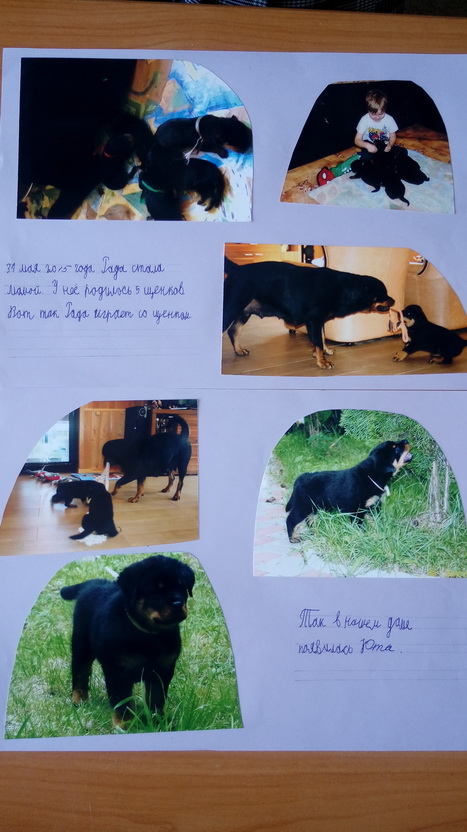 31 мая 2015 года Рада стала
мамой. У неё родилось 5 щенков.
Вот так Рада играет со щенком.
Так в нашем доме
появилась Юта.